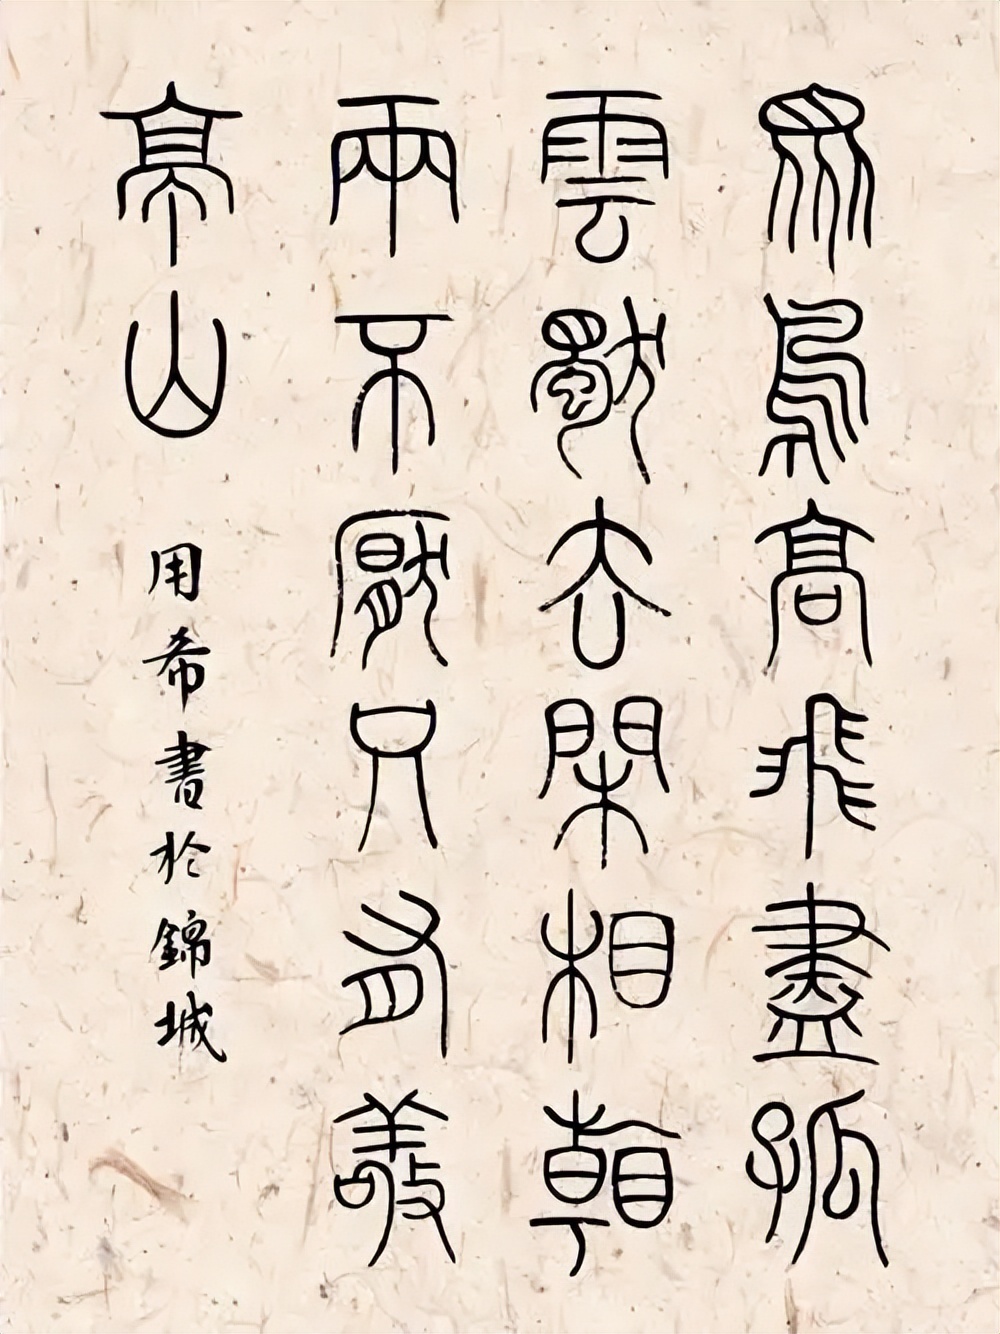 眾鳥高飛盡孤
雲獨去閑相看
兩不厭只有敬
亭山
用希書於錦城